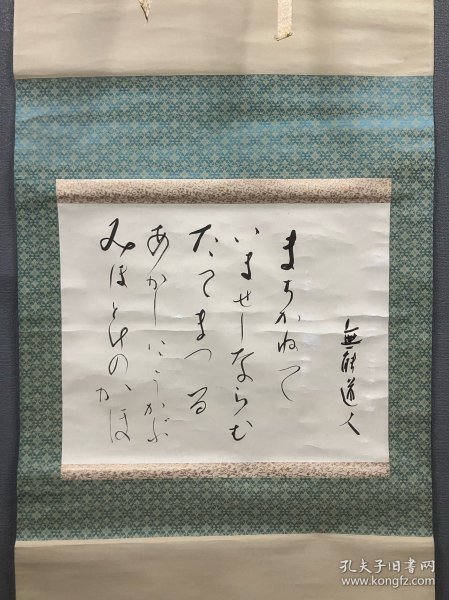 まちかねて
いませしならむ
たてまつる
あかしにうかぶ
みほとけのかほ
道人
孔夫子旧书网
www.kongfz.com